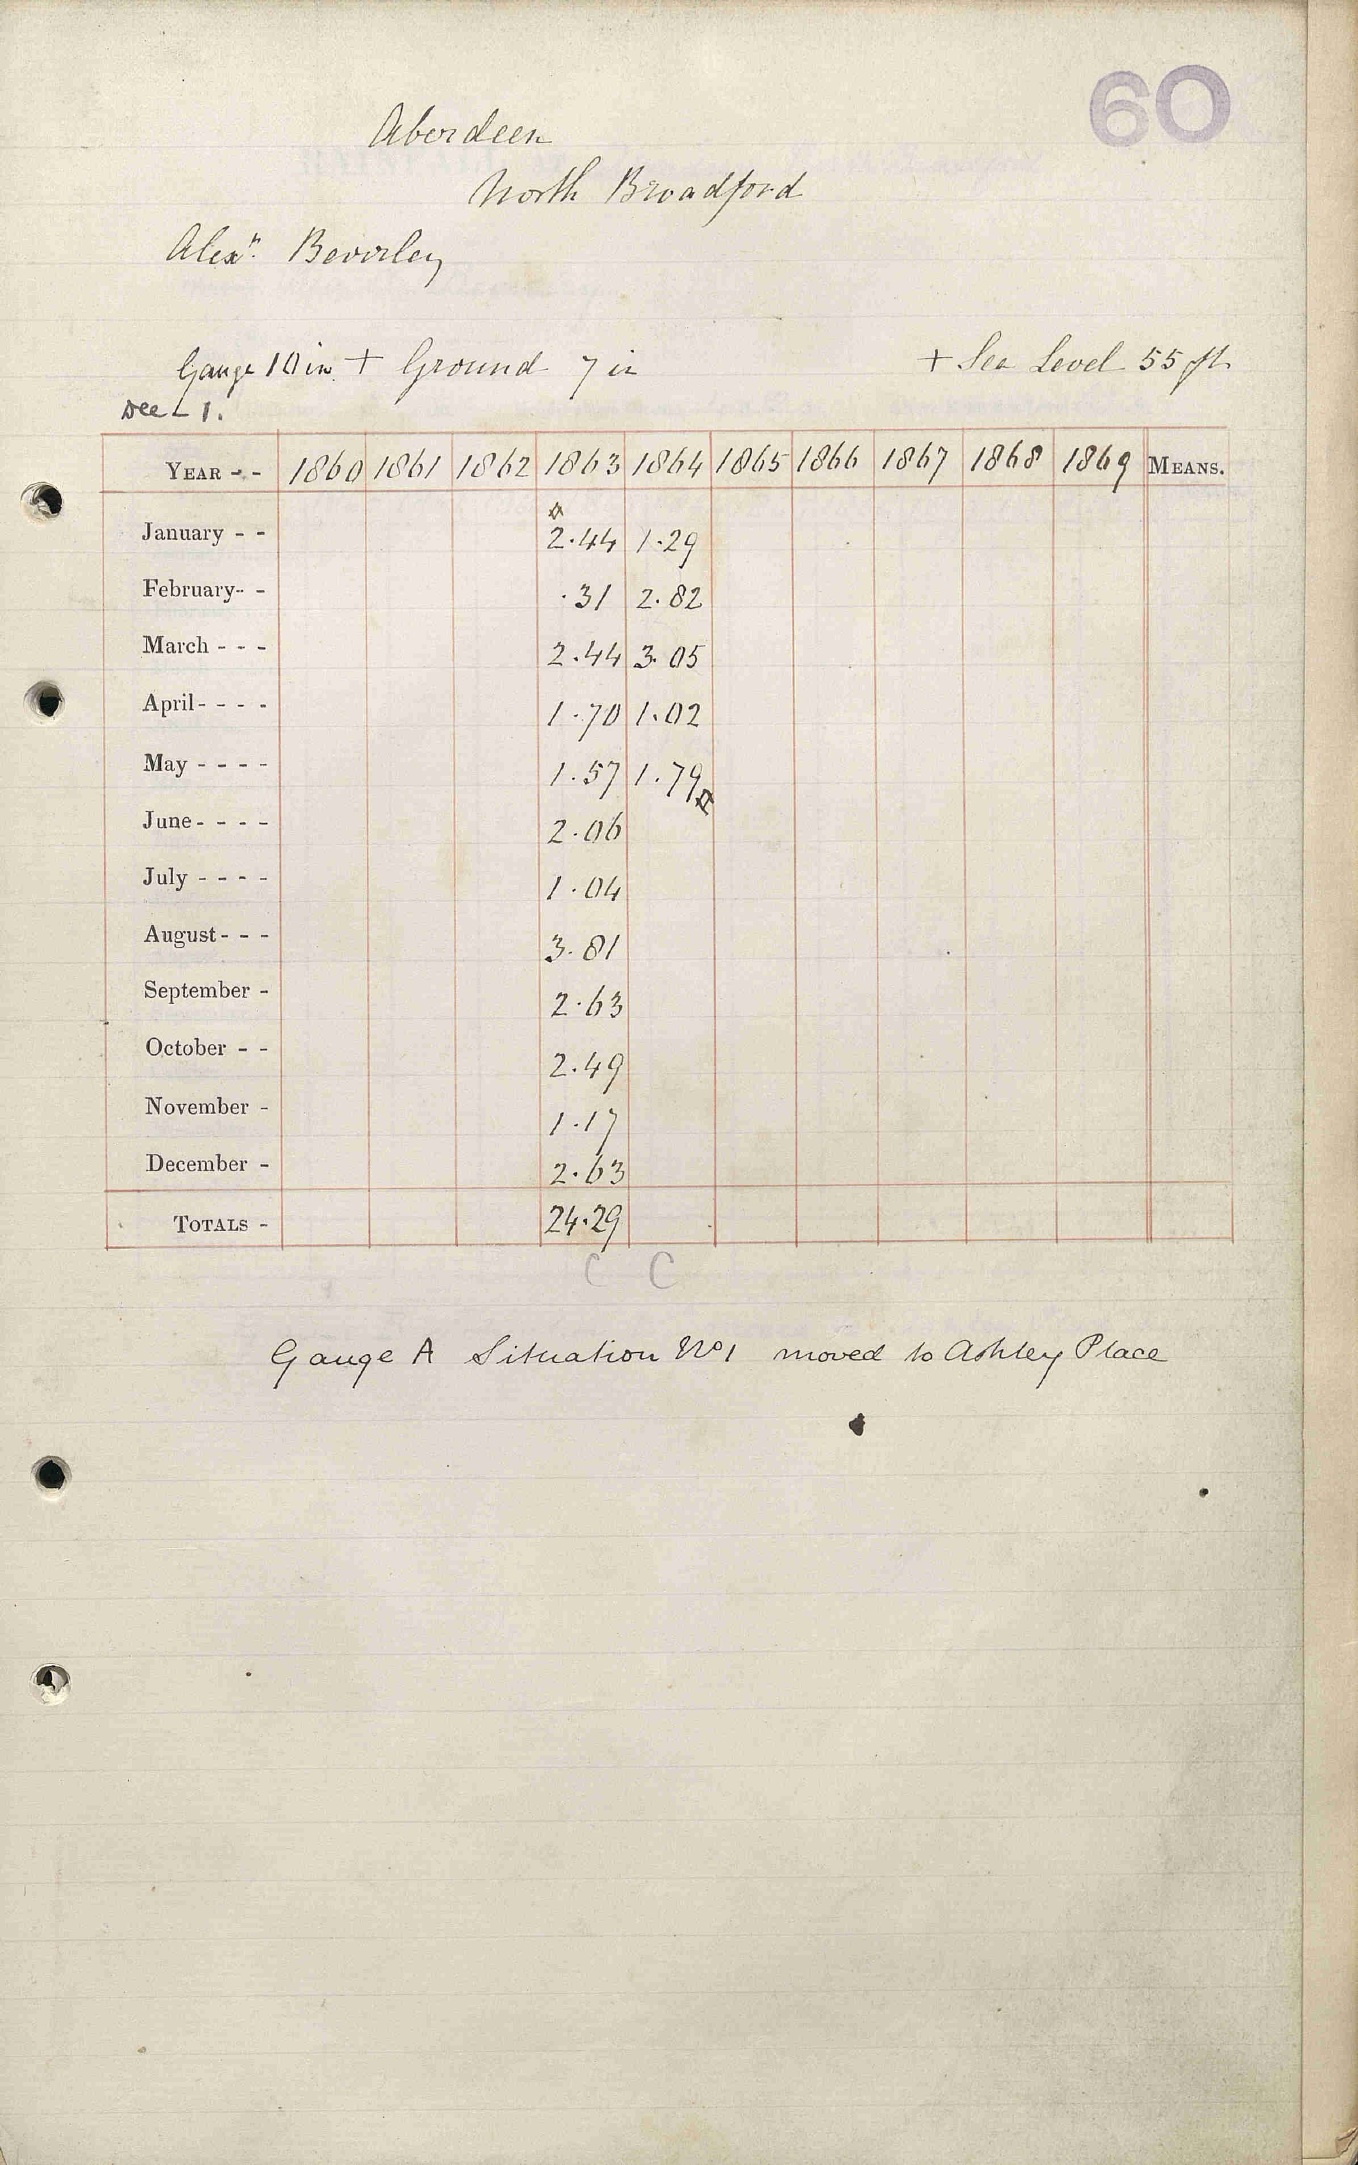 60
Aberdeen
North Broadford
Alexr. Beverley
Gauge 10 in + Ground 7 in + Sea Level 55 ft
Dec 1.
YEAR - - 1860 1861 1862 1863 1864 1865 1866 1867 1868 1869 MEANS.
January - - 2.44 1.29
February - - .31 2.82
March - - - 2.44 3.05
April - - - - 1.70 1.02
May - - - - 1.57 1.79
June - - - - 2.06
July - - - - 1.04
August - - - 3.81
September - 2.63
October - - 2.49
November - 1.17
December - 2.63
TOTALS - 24.29
C C
Gauge A Situation No 1 moved to Ashley Place